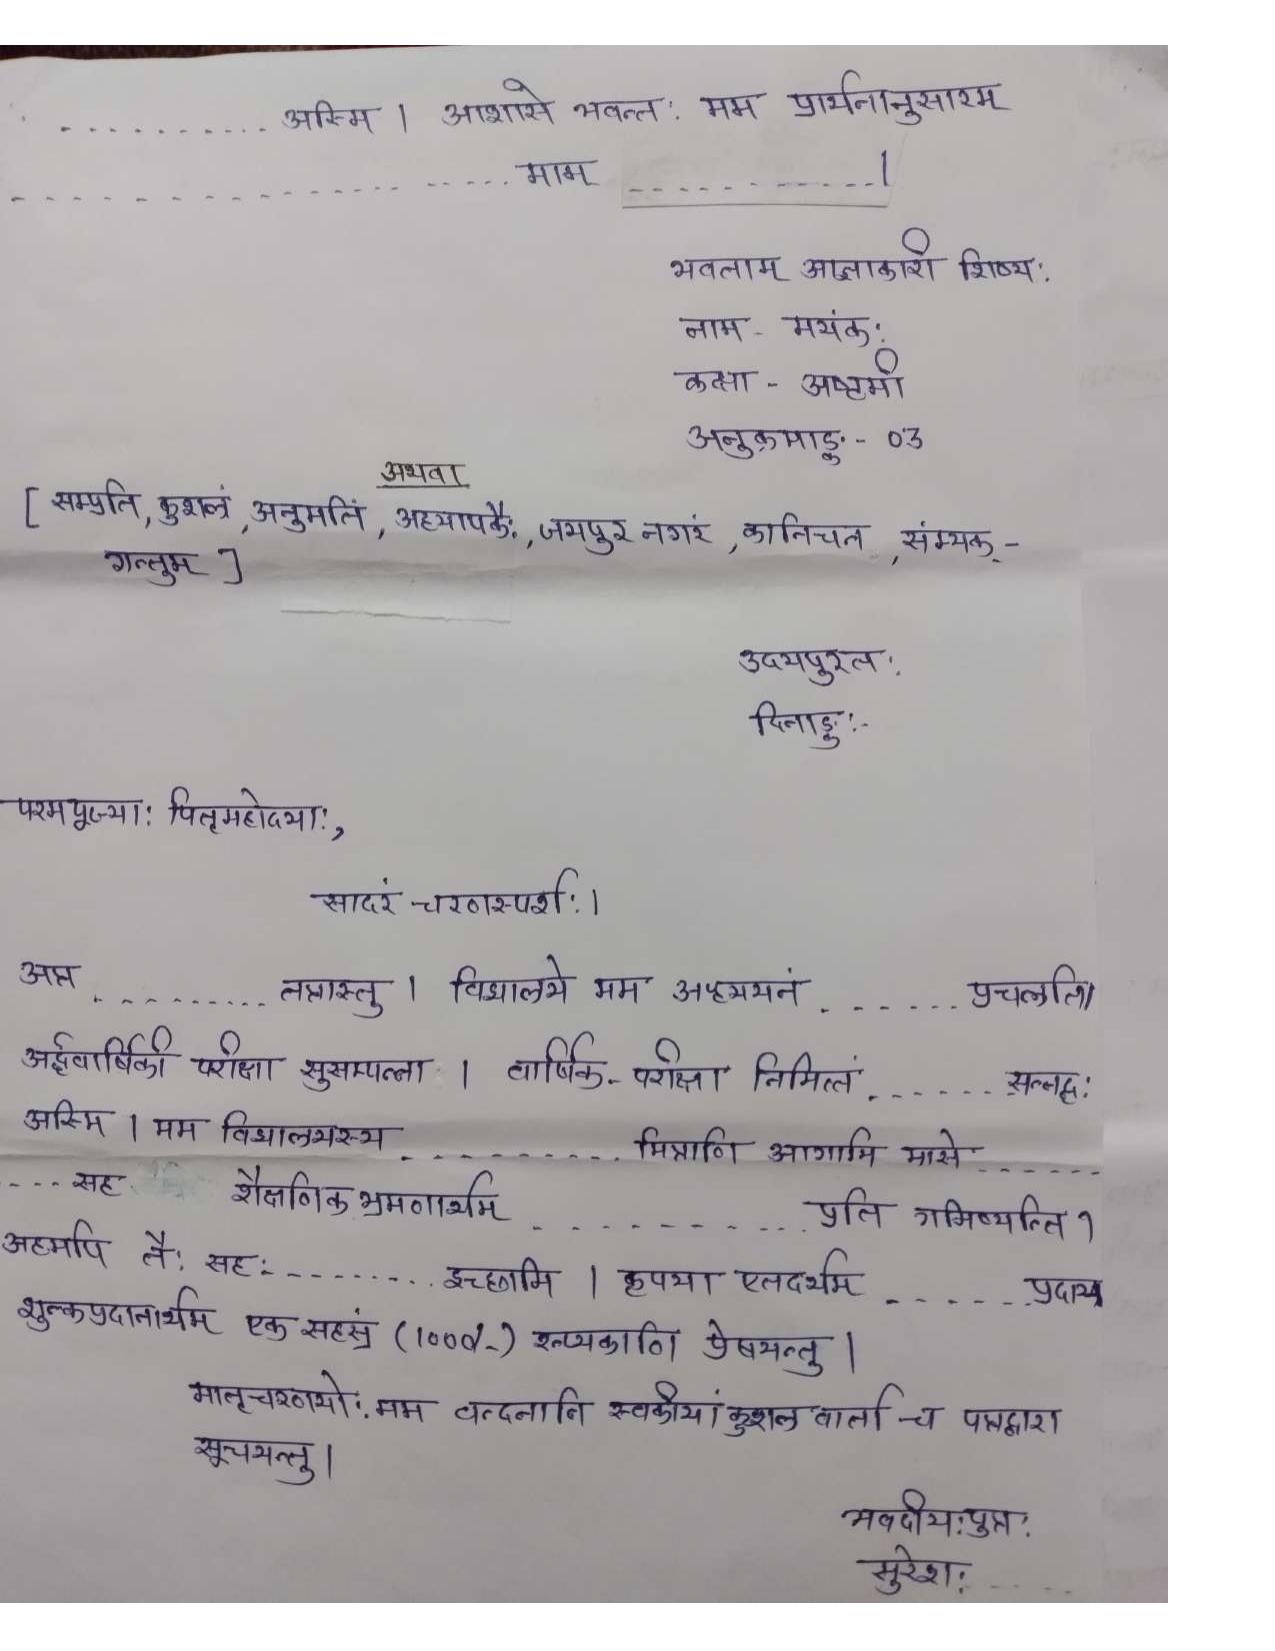 ........... अस्मि । आशासे भवन्तः मम प्रार्थनानुसारम्
........................ माम् ............ ।
भवताम् आज्ञाकारी शिष्यः
नाम - मयंकः
कक्षा - अष्टमी
अनुक्रमाङ्कः - 03
अथवा
[ सम्प्रति, कुशलं, अनुमतिं, अध्यापकैः, जयपुर नगरं, कानिचन, संम्यक् -
गन्तुम् ]
उदयपुरतः
दिनाङ्कः -
परमपूज्याः पितृमहोदयाः,
सादरं चरणस्पर्शः ।
अत्र .......... तत्रास्तु । विद्यालये मम अध्ययनं ....... प्रचलति।
अर्द्धवार्षिकी परीक्षा सुसम्पन्ना । वार्षिक - परीक्षा निमित्तं ....... सन्नद्धः
अस्मि । मम विद्यालयस्य .......... मित्राणि आगामि मासे ......
.... सह शैक्षणिक भ्रमणार्थम् ............ प्रति गमिष्यन्ति ।
अहमपि तैः सहः ........ इच्छामि । कृपया एतदर्थम् ....... प्रदाय
शुल्कप्रदानार्थम् एक सहस्रं (1000/-) रुप्यकाणि प्रेषयन्तु ।
मातृचरणयोः मम वन्दनानि स्वकीयां कुशल वार्तां च पत्रद्वारा
सूचयन्तु ।
भवदीयः पुत्रः
सुरेशः .....